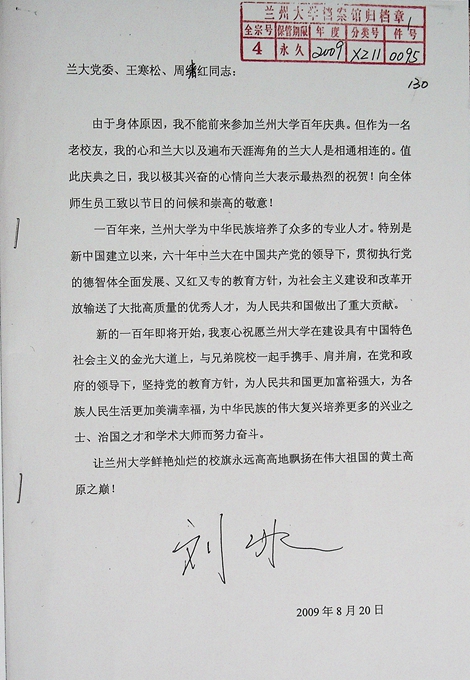 兰州大学档案馆归档章
全宗号 保管期限 年度 分类号 件号
4 永久 2009 XZ11 0095
1
130
兰大党委、王寒松、周绪红同志：
由于身体原因，我不能前来参加兰州大学百年庆典。但作为一名
老校友，我的心和兰大以及遍布天涯海角的兰大人是相通相连的。值
此庆典之日，我以极其兴奋的心情向兰大表示最热烈的祝贺！向全体
师生员工致以节日的问候和崇高的敬意！
一百年来，兰州大学为中华民族培养了众多的专业人才。特别是
新中国建立以来，六十年中兰大在中国共产党的领导下，贯彻执行党
的德智体全面发展、又红又专的教育方针，为社会主义建设和改革开
放输送了大批高质量的优秀人才，为人民共和国做出了重大贡献。
新的一百年即将开始，我衷心祝愿兰州大学在建设具有中国特色
社会主义的金光大道上，与兄弟院校一起手携手、肩并肩，在党和政
府的领导下，坚持党的教育方针，为人民共和国更加富裕强大，为各
族人民生活更加美满幸福，为中华民族的伟大复兴培养更多的兴业之
士、治国之才和学术大师而努力奋斗。
让兰州大学鲜艳灿烂的校旗永远高高地飘扬在伟大祖国的黄土高
原之巅！
刘冰
2009 年 8 月 20 日